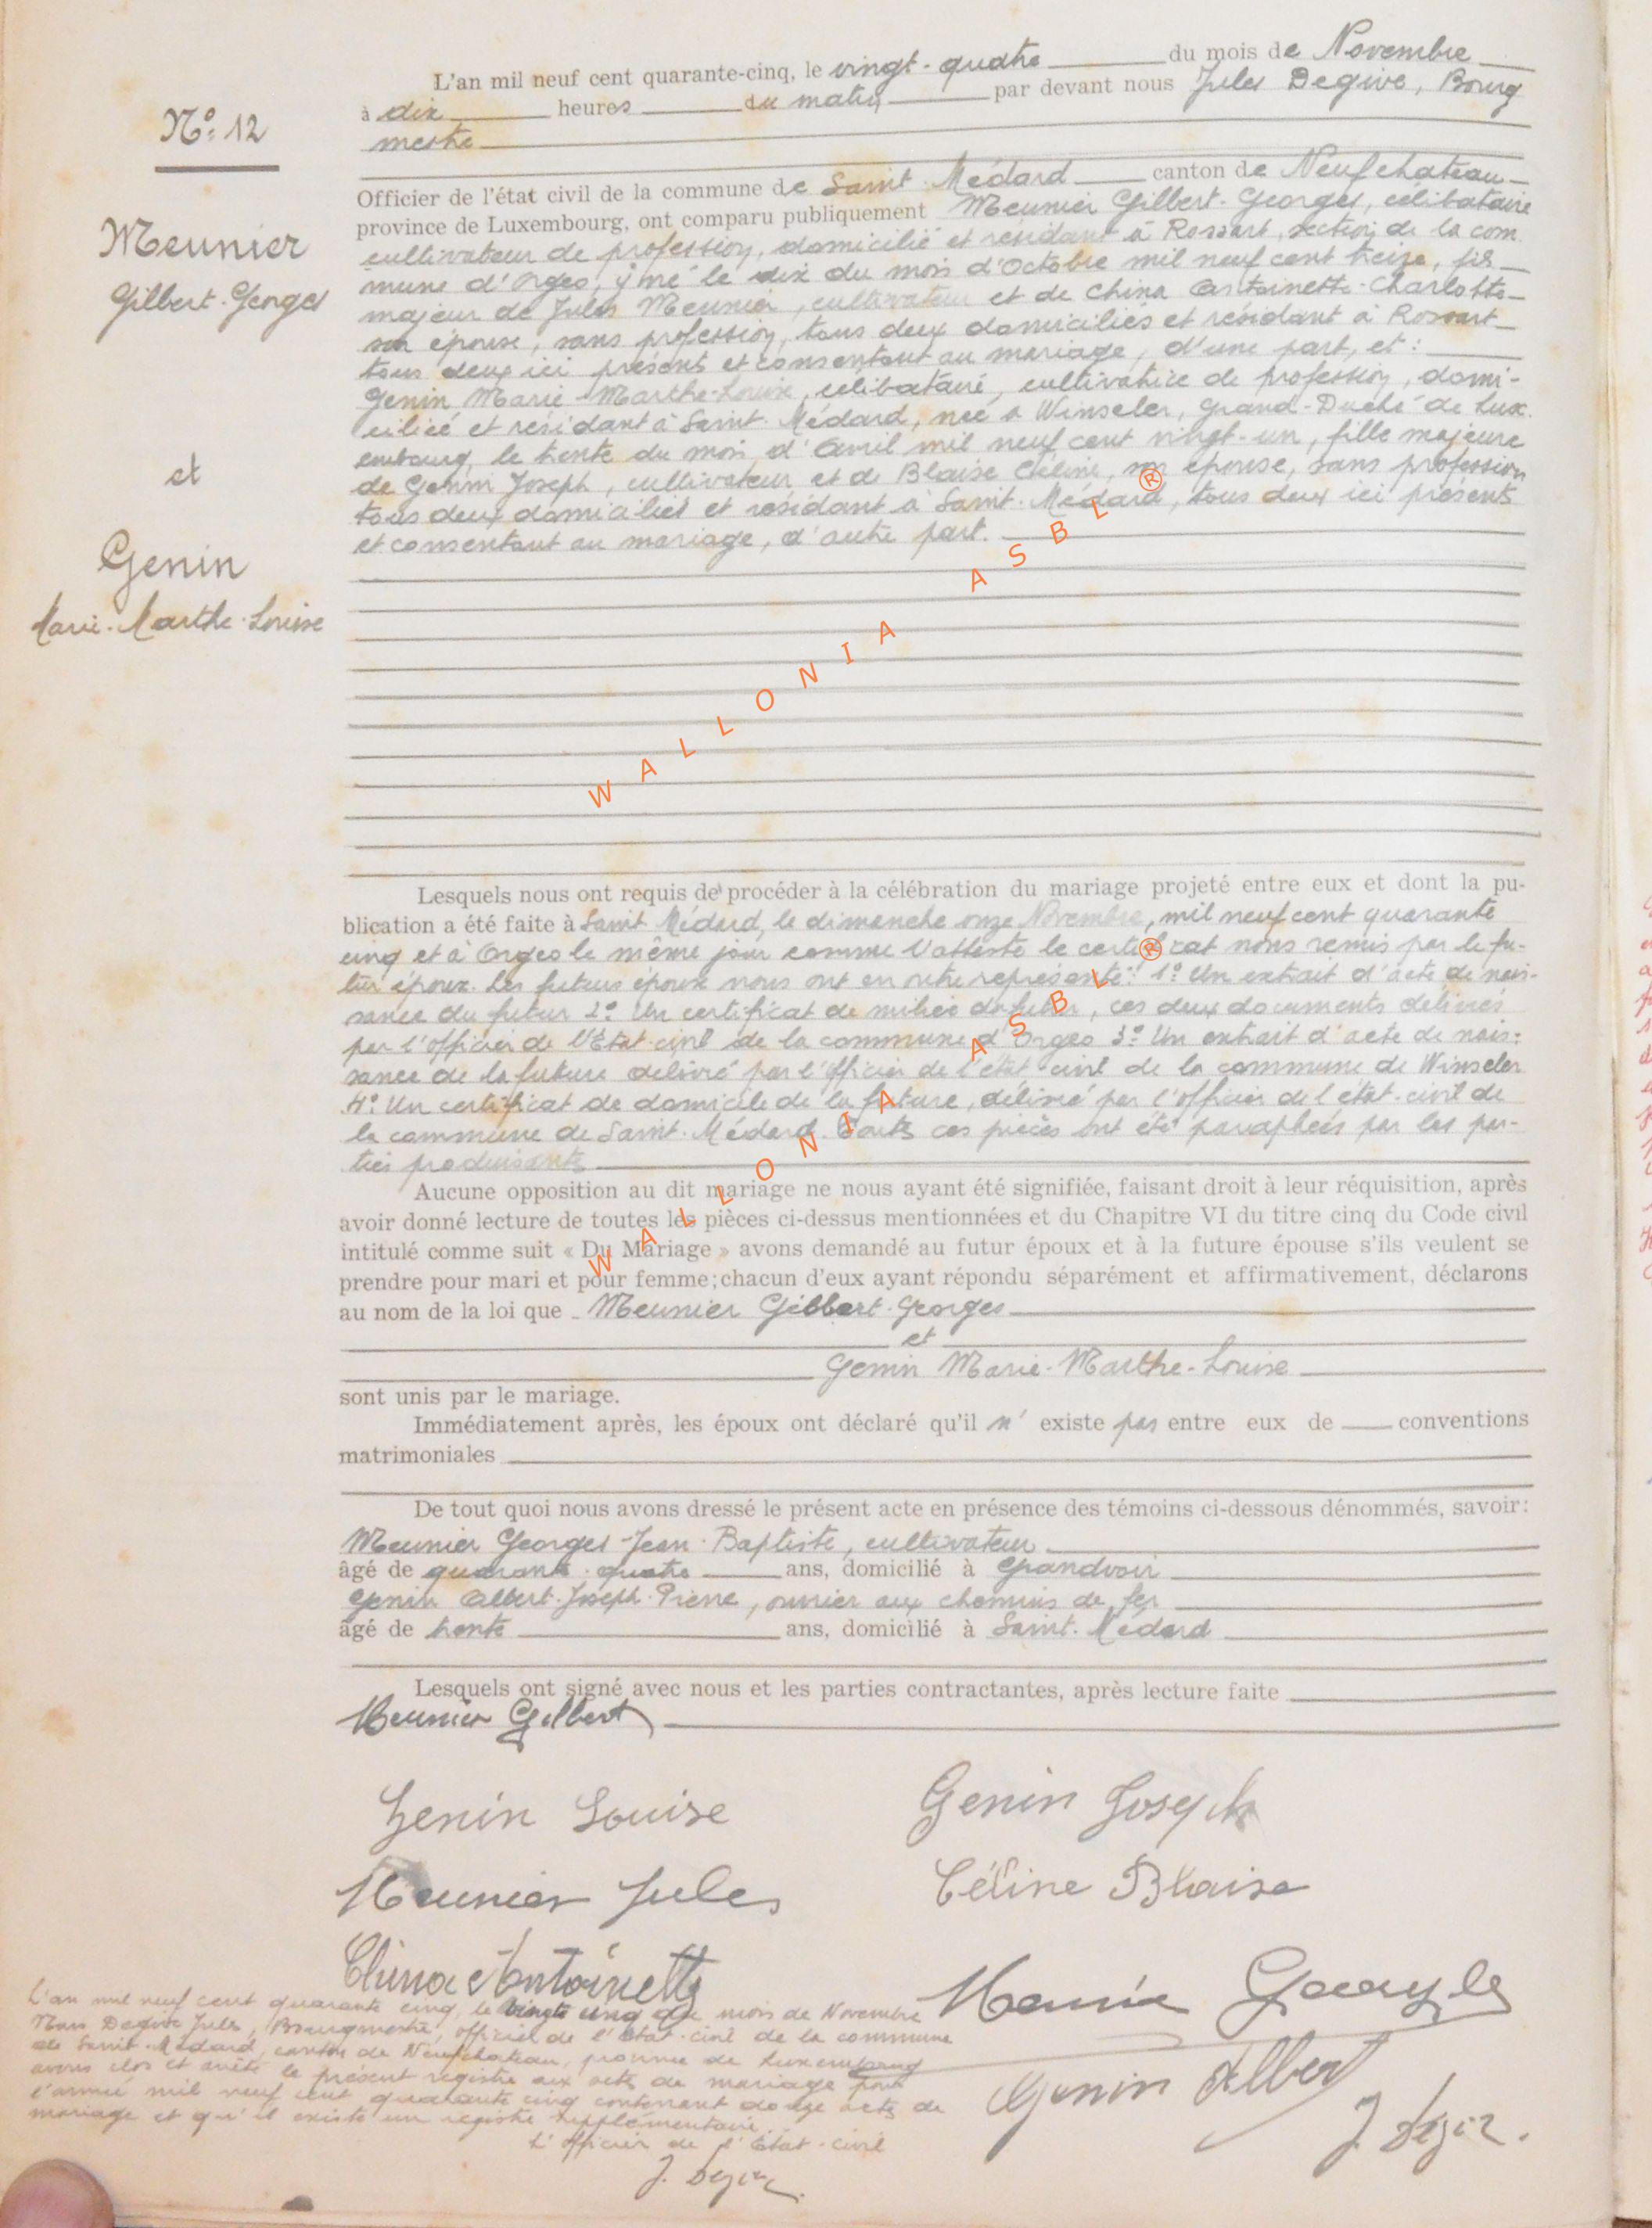 L'an mil neuf cent quarante-cinq, le vingt-quatre du mois de Novembre
à dix heures du matin par devant nous Jules Degive, Bourg
mestre
Nº 12
Officier de l'état civil de la commune de Saint Médard canton de Neufchateau
province de Luxembourg, ont comparu publiquement Meunier Gilbert-Georges, célibataire
cultivateur de profession, domicilié et résidant à Rossart, section de la com
mune d'Orgeo, y né le dix du mois d'Octobre mil neuf cent treize, fils
majeur de Jules Meunier, cultivateur et de China Antoinette-Charlotte
son épouse, sans profession, tous deux domiciliés et résidant à Rossart
tous deux ici présents et consentant au mariage, d'une part, et :
Genin Marie-Marthe-Louise, célibataire, cultivatrice de profession, domi-
ciliée et résidant à Saint-Médard, née à Winseler, Grand-Duché de Lux
embourg, le trente du mois d'Avril mil neuf cent vingt-un, fille majeure
de Genin Joseph, cultivateur et de Blaise Céline, son épouse, sans profession
tous deux domiciliés et résidant à Saint-Médard, tous deux ici présents
et consentant au mariage, d'autre part.
Meunier
Gilbert-Georges
et
Genin
Marie-Marthe-Louise
WALLONIA ASBL ®
Lesquels nous ont requis de procéder à la célébration du mariage projeté entre eux et dont la pu-
blication a été faite à Saint Médard, le dimanche onze Novembre, mil neuf cent quarante
cinq et à Orgeo le même jour comme l'atteste le certificat nous remis par le fu-
tur époux. Les futurs époux nous ont en outre représenté : 1º Un extrait d'acte de nais-
sance du futur 2º Un certificat de milice du futur, ces deux documents délivrés
par l'officier de l'Etat-civil de la commune d'Orgeo 3º Un extrait d'acte de nais-
sance de la future délivré par l'officier de l'état-civil de la commune de Winseler
4º Un certificat de domicile de la future, délivré par l'officier de l'état-civil de
la commune de Saint-Médard. Toutes ces pièces ont été paraphées par les par-
ties produisantes
WALLONIA ASBL ®
Aucune opposition au dit mariage ne nous ayant été signifiée, faisant droit à leur réquisition, après
avoir donné lecture de toutes les pièces ci-dessus mentionnées et du Chapitre VI du titre cinq du Code civil
intitulé comme suit « Du Mariage » avons demandé au futur époux et à la future épouse s'ils veulent se
prendre pour mari et pour femme; chacun d'eux ayant répondu séparément et affirmativement, déclarons
au nom de la loi que Meunier Gilbert-Georges
et
Genin Marie-Marthe-Louise
sont unis par le mariage.
Immédiatement après, les époux ont déclaré qu'il n' existe pas entre eux de conventions
matrimoniales
De tout quoi nous avons dressé le présent acte en présence des témoins ci-dessous dénommés, savoir:
Meunier Georges-Jean-Baptiste, cultivateur
âgé de quarante-quatre ans, domicilié à Grandvoir
Genin Albert-Joseph-Pierre, ouvrier aux chemins de fer
âgé de trente ans, domicilié à Saint-Médard
Lesquels ont signé avec nous et les parties contractantes, après lecture faite
Meunier Gilbert
Genin Louise Genin Joseph
Meunier Jules Céline Blaise
China Antoinette
Meunier Georges
Genin Albert
J. Degive.
L'an mil neuf cent quarante cinq, le vingt cinq du mois de Novembre
Nous Degive Jules, Bourgmestre, officier de l'état-civil de la commune
de Saint-Médard, canton de Neufchateau, province de Luxembourg
avons clos et arrêté le présent registre aux actes de mariage pour
l'année mil neuf cent quarante cinq contenant douze actes de
mariage et qu'il existe un registre supplémentaire.
L'Officier de l'Etat-civil
J. Degive.